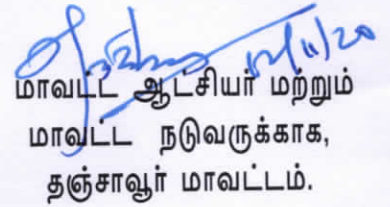 12/11/20
மாவட்ட ஆட்சியர் மற்றும்
மாவட்ட நடுவருக்காக,
தஞ்சாவூர் மாவட்டம்.